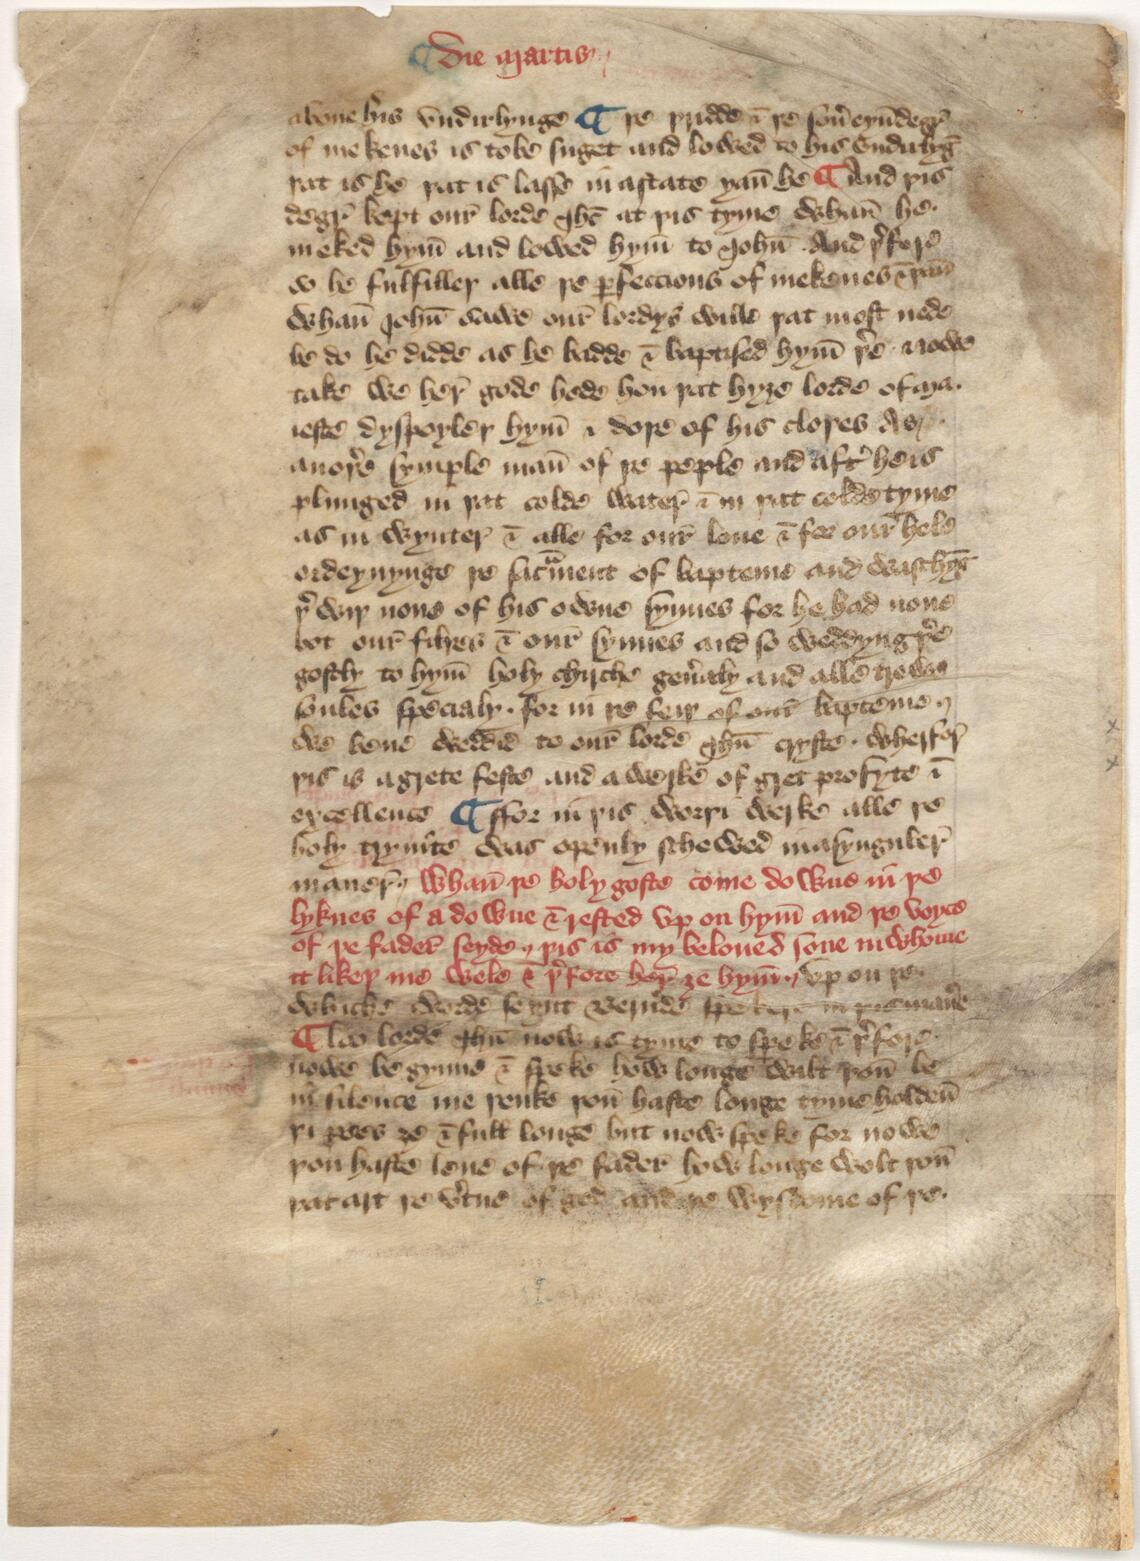 ¶ Die Martis
aboue his vndirlynge ¶ þe þridde & þe soũeyñ degr̃
of mekenes is to be suget and lowed to his vndirlyg̃
þat is he þat is lasse in astate þañ he ¶ And þis
degr̃ kept our̃ lorde Ih̃c at þis tyme whañ he
meked hym̃ and lowed hym̃ to Ioh̃n . And þ̃fore
so he fulfilleþ alle þe ꝑfeccions of mekenes
Whañ Ioh̃n sawe our̃ lordys wille þat most nede
be do he didde as he badde & baptised hym̃ þ̃e . nowe
take we her̃ gode hede hou þat hyȝe lorde of ma
ieste dyspoyleþ hym̃ & doþe of his cloþes As
anoþ̃e symple mañ of þe peple and aft̃ he is
plunged in þat colde water̃ & in þat colde tyme
as in wynter̃ & alle for our̃ loue & for our̃ hele
ordeynynge þe sac̃ment of bapteme and waschyg̃
þ̃ wiþ none of his owne synnes for he had none
bot our̃ filþes & our̃ synnes and so weddyng þ̃e
gostly to hym̃ holy chirche geñaly and alle trowe
soules specialy . for in þe feiþ of our̃ bapteme
we bene weddid to our̃ lorde Ih̃u cryste . wherfor̃
þis is a grete feste and a werke of gret profyte &
excellence ¶ ffor in þis worþi werke alle þe
holy trynite was openly schewed in a synguler̃
maner̃ Whañ þe holy goste come downe in þe
lyknes of a dowue & rested vp on hym̃ and þe voyce
of þe fader̃ seyde þis is my beloued sone in whome
it likeþ me wele & þ̃fore her̃ ȝe hym̃ vp on þe
whiche worde seynt Berñde spekeþ in þis mañe
¶ Loo lorde Ih̃u now is tyme to speke & þ̃fore
nowe begynne & speke how longe wilt þou be
in silence me þenke þou haste longe tyme holdeñ
þi pees ȝe & full longe but now speke for nowe
þou haste leue of þe fader̃ how longe wolt þou
þat art þe v̾tue of god and þe wysdome of þe